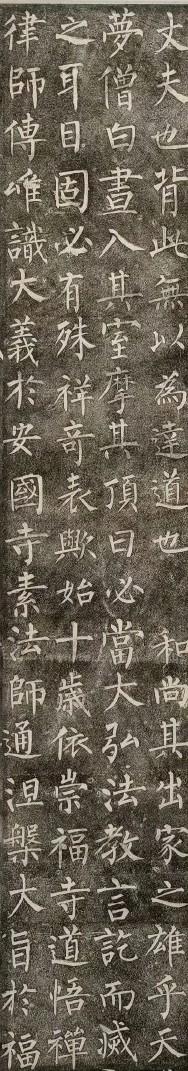 丈夫也背此無以為達道也　和尚其出家之雄乎天
夢僧白晝入其室摩其頂曰必當大弘法教言訖而滅
之耳目固必有殊祥奇表歟始十歲依崇福寺道悟禪
律師傳唯識大義於安國寺素法師通涅槃大旨於福